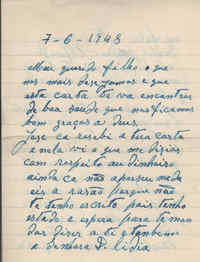 7-6-1948
Meu querido filho o que
nos mais desejamos e que
esta carta te va encontrar
de boa saude que nos ficamos
bem graças a Deus.
José ca recebi a tua carta
e nela vi o que me dizias
com respeito ao dinheiro
ainda ca não apareceu
eis a rasão porque não
te tenho escrito pois tenho
estado a espera para te man
dar dizer a ti e tambem
a senhora D. Lidia